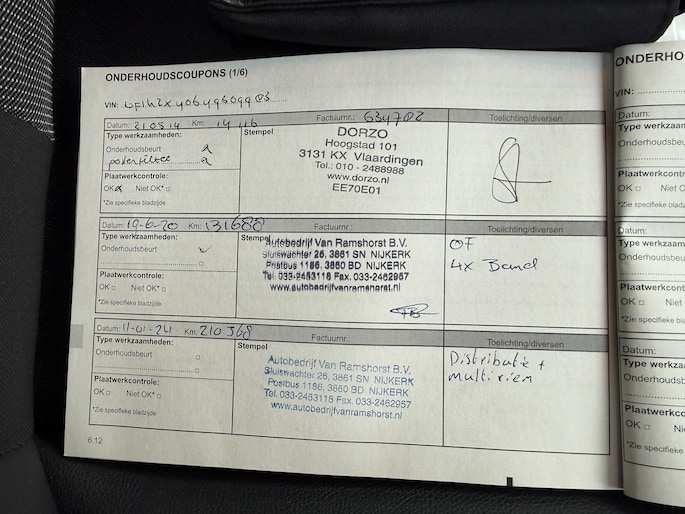 ONDERHOUDSCOUPONS (1/6)
VIN:
Datum: 210514 Km: 14 116 Factuurnr.: 634702 Toelichting/diversen
Type werkzaamheden: Stempel
Onderhoudsbeurt
Plaatwerkcontrole:
OK Niet OK*
*Zie specifieke bladzijde
DORZO
Hoogstad 101
3131 KX Vlaardingen
Tel.: 010 - 2488988
www.dorzo.nl
EE70E01
Datum: 19-6-20 Km: 131688 Factuurnr.: Toelichting/diversen
Type werkzaamheden: Stempel
Onderhoudsbeurt
Plaatwerkcontrole:
OK Niet OK*
*Zie specifieke bladzijde
Autobedrijf Van Ramshorst B.V.
Sluiswachter 26, 3861 SN NIJKERK
Postbus 1186, 3860 BD NIJKERK
Tel. 033-2453118 Fax. 033-2462957
www.autobedrijfvanramshorst.nl
OF
4x Band
Datum: 11-01-24 Km: 210368 Factuurnr.: Toelichting/diversen
Type werkzaamheden: Stempel
Onderhoudsbeurt
Plaatwerkcontrole:
OK Niet OK*
*Zie specifieke bladzijde
Autobedrijf Van Ramshorst B.V.
Sluiswachter 26, 3861 SN NIJKERK
Postbus 1186, 3860 BD NIJKERK
Tel. 033-2453118 Fax. 033-2462957
www.autobedrijfvanramshorst.nl
Distributie +
multiriem
6.12
ONDERHO
VIN:
Datum:
Type werkzaam
Onderhoudsbeu
Plaatwerkcontr
OK Niet OK
*Zie specifieke blad
Datum:
Type werkzaa
Onderhoudsb
Plaatwerkcon
OK Niet
*Zie specifieke
Datum:
Type werkza
Onderhouds
Plaatwerkco
OK Ni
*Zie specifieke